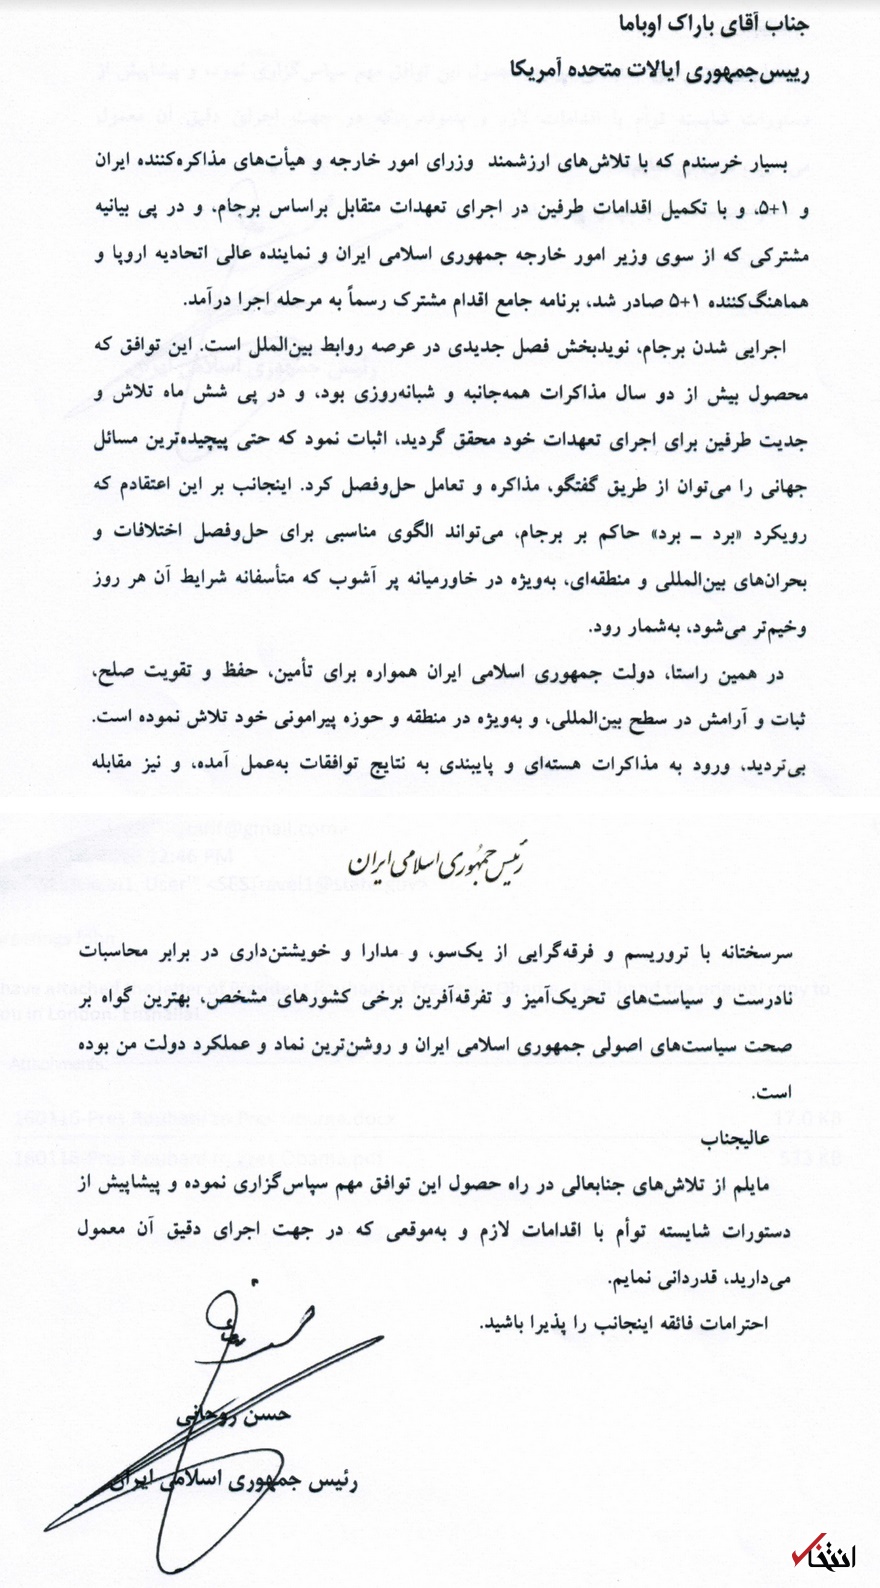 جناب آقای باراک اوباما
رییس‌جمهوری ایالات متحده آمریکا
بسیار خرسندم که با تلاش‌های ارزشمند وزرای امور خارجه و هیأت‌های مذاکره‌کننده ایران
و ۱+۵، و با تکمیل اقدامات طرفین در اجرای تعهدات متقابل براساس برجام، و در پی بیانیه
مشترکی که از سوی وزیر امور خارجه جمهوری اسلامی ایران و نماینده عالی اتحادیه اروپا و
هماهنگ‌کننده ۱+۵ صادر شد، برنامه جامع اقدام مشترک رسماً به مرحله اجرا درآمد.
اجرایی شدن برجام، نویدبخش فصل جدیدی در عرصه روابط بین‌الملل است. این توافق که
محصول بیش از دو سال مذاکرات همه‌جانبه و شبانه‌روزی بود، و در پی شش ماه تلاش و
جدیت طرفین برای اجرای تعهدات خود محقق گردید، اثبات نمود که حتی پیچیده‌ترین مسائل
جهانی را می‌توان از طریق گفتگو، مذاکره و تعامل حل‌وفصل کرد. اینجانب بر این اعتقادم که
رویکرد «برد ـ برد» حاکم بر برجام، می‌تواند الگوی مناسبی برای حل‌وفصل اختلافات و
بحران‌های بین‌المللی و منطقه‌ای، به‌ویژه در خاورمیانه پر آشوب که متأسفانه شرایط آن هر روز
وخیم‌تر می‌شود، به‌شمار رود.
در همین راستا، دولت جمهوری اسلامی ایران همواره برای تأمین، حفظ و تقویت صلح،
ثبات و آرامش در سطح بین‌المللی، و به‌ویژه در منطقه و حوزه پیرامونی خود تلاش نموده است.
بی‌تردید، ورود به مذاکرات هسته‌ای و پایبندی به نتایج توافقات به‌عمل آمده، و نیز مقابله
رئیس جمهوری اسلامی ایران
سرسختانه با تروریسم و فرقه‌گرایی از یک‌سو، و مدارا و خویشتن‌داری در برابر محاسبات
نادرست و سیاست‌های تحریک‌آمیز و تفرقه‌آفرین برخی کشورهای مشخص، بهترین گواه بر
صحت سیاست‌های اصولی جمهوری اسلامی ایران و روشن‌ترین نماد و عملکرد دولت من بوده
است.
عالیجناب
مایلم از تلاش‌های جنابعالی در راه حصول این توافق مهم سپاس‌گزاری نموده و پیشاپیش از
دستورات شایسته توأم با اقدامات لازم و به‌موقعی که در جهت اجرای دقیق آن معمول
می‌دارید، قدردانی نمایم.
احترامات فائقه اینجانب را پذیرا باشید.
حسن روحانی
رئیس جمهوری اسلامی ایران
انتخاب